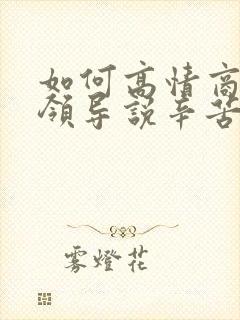 如何高情商
领导说辛苦
雾灯花